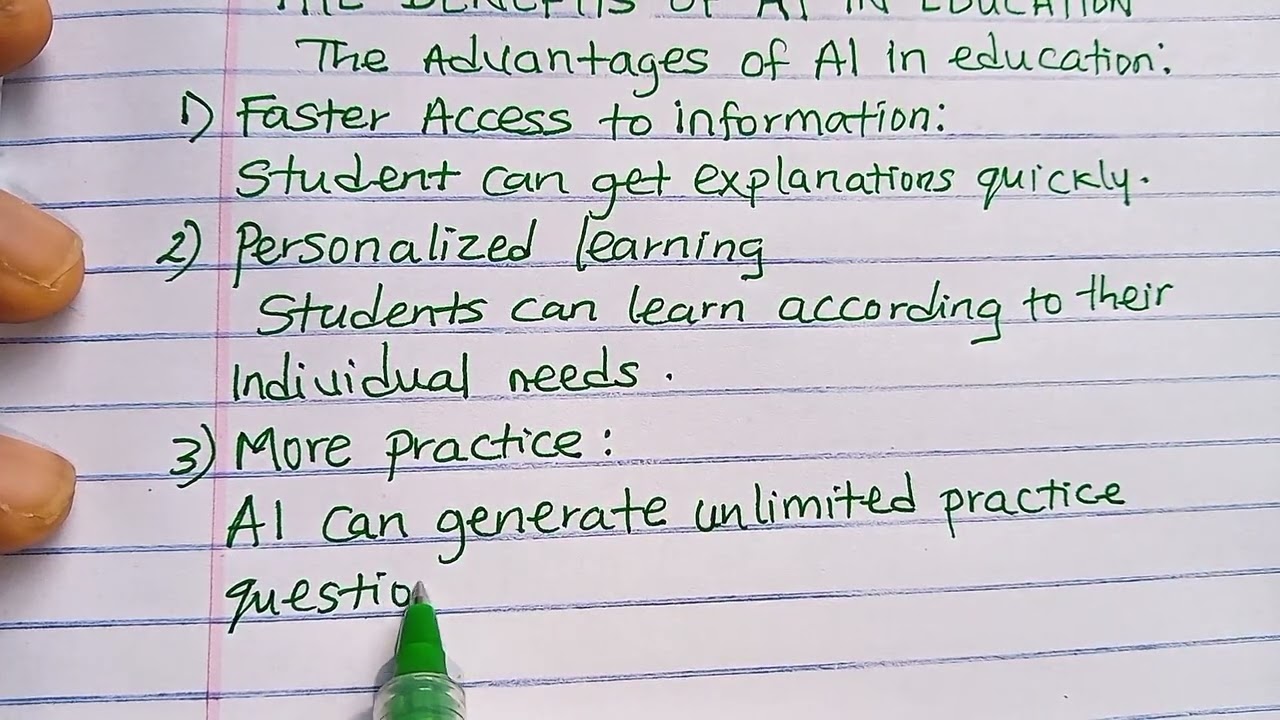 THE BENEFITS OF AI IN EDUCATION
The Advantages of AI in education:
1) Faster Access to information:
Student can get explanations quickly.
2) Personalized learning
Students can learn according to their
Individual needs.
3) More practice:
AI can generate unlimited practice
questio